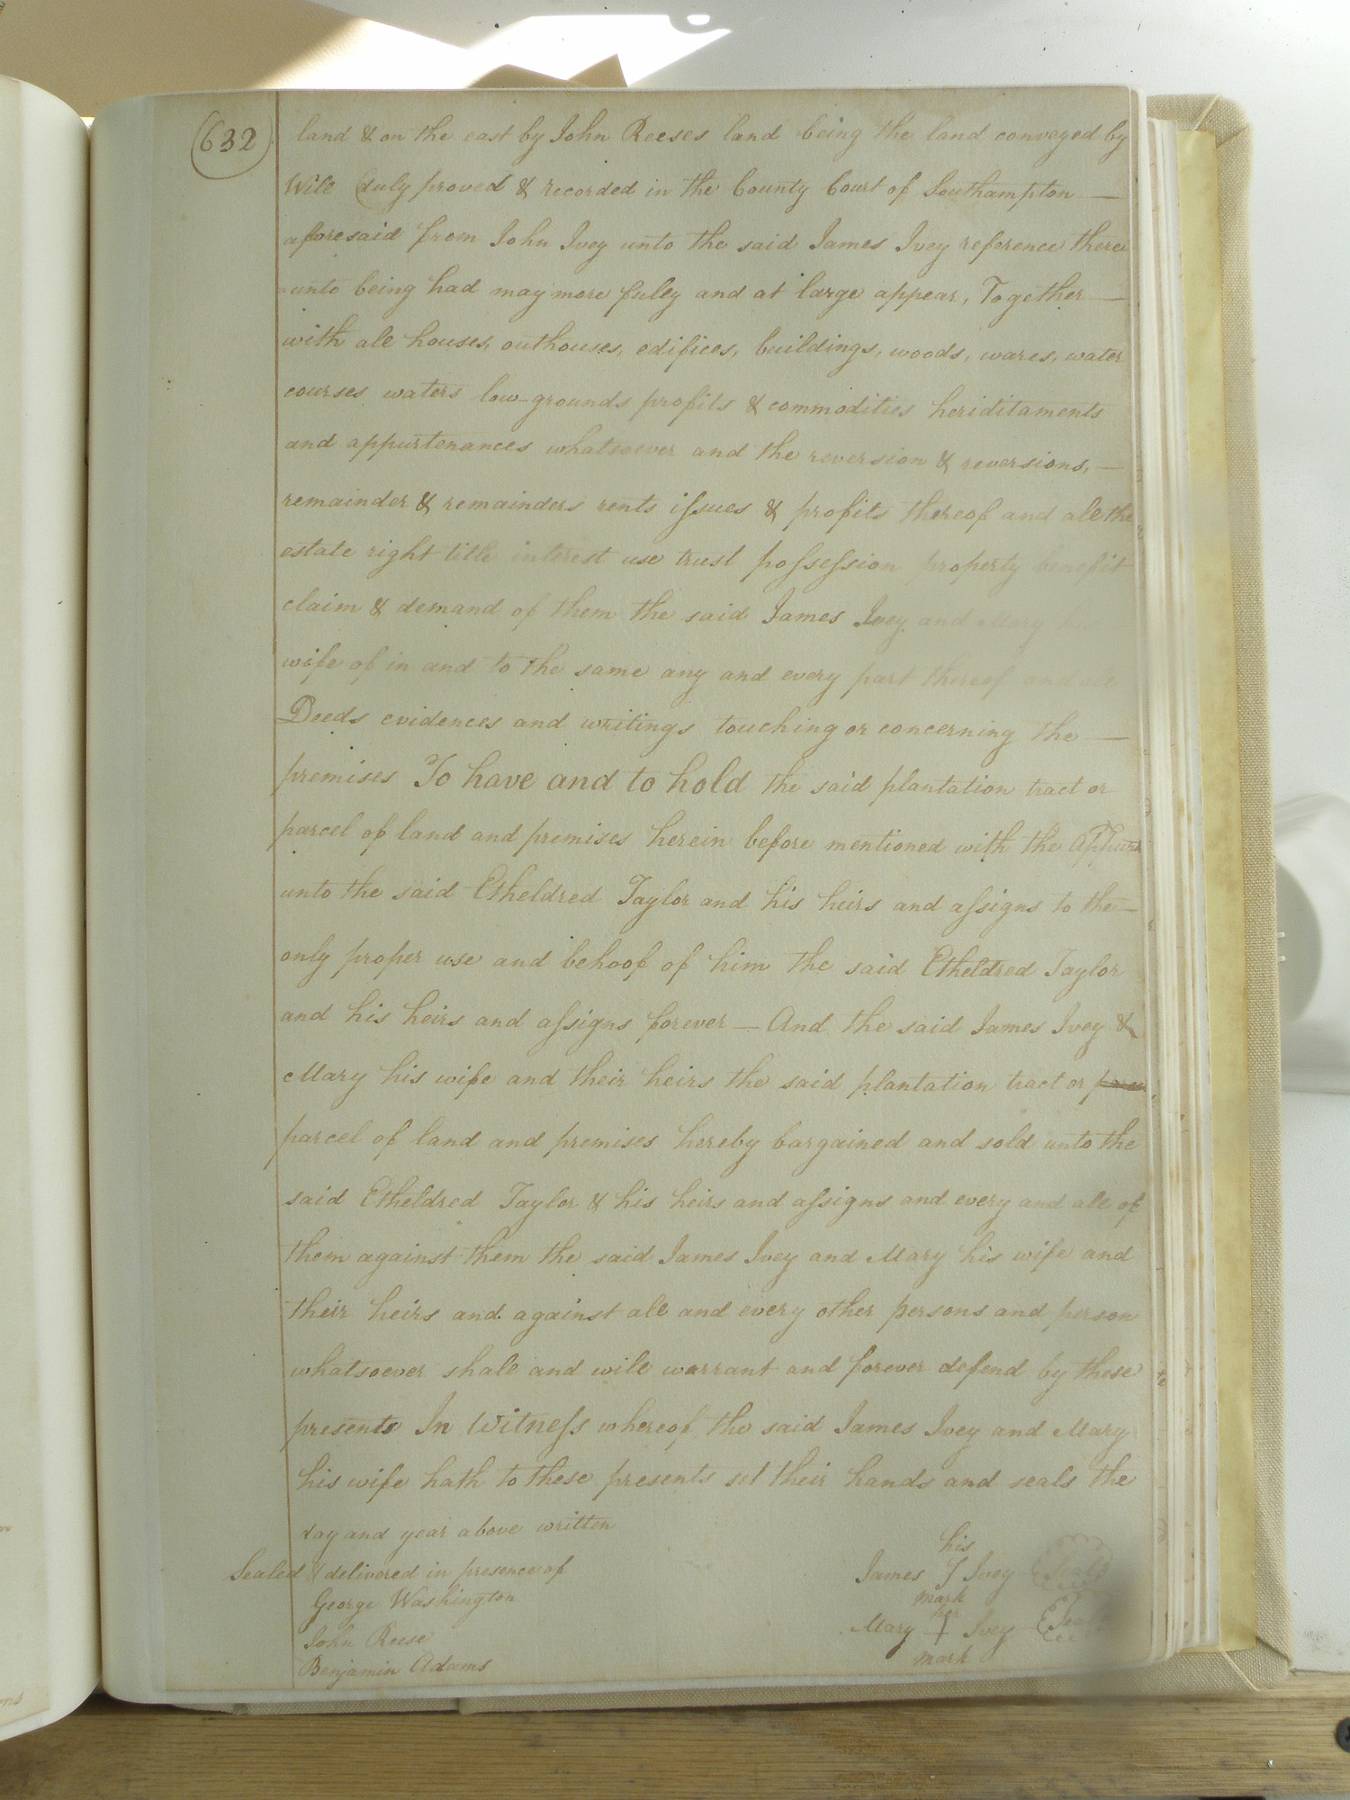 632
land & on the east by John Reeses land being the land conveyed by
Will duly proved & recorded in the County Court of Southampton —
aforesaid from John Ivey unto the said James Ivey reference there
-unto being had may more fully and at large appear, Together —
with all houses, outhouses, edifices, buildings, woods, wares, water
courses waters low-grounds profits & commodities heriditaments
and appurtenances whatsoever and the reversion & reversions, —
remainder & remainders rents issues & profits thereof and all the
estate right title interest use trust possession property benefit
claim & demand of them the said James Ivey and Mary his
wife of in and to the same any and every part thereof and all
Deeds evidences and writings touching or concerning the —
premises To have and to hold the said plantation tract or
parcel of land and premises herein before mentioned with the
unto the said Etheldred Taylor and his heirs and assigns to the —
only proper use and behoof of him the said Etheldred Taylor
and his heirs and assigns forever — And the said James Ivey &
Mary his wife and their heirs the said plantation tract or
parcel of land and premises hereby bargained and sold unto the
said Etheldred Taylor & his heirs and assigns and every and all of
them against them the said James Ivey and Mary his wife and
their heirs and against all and every other persons and person
whatsoever shall and will warrant and forever defend by these
presents In Witness whereof the said James Ivey and Mary
his wife hath to these presents set their hands and seals the
day and year above written
Sealed & delivered in presence of
George Washington
John Reese
Benjamin Adams
his
James I Ivey Seal
mark
her
Mary + Ivey Seal
mark